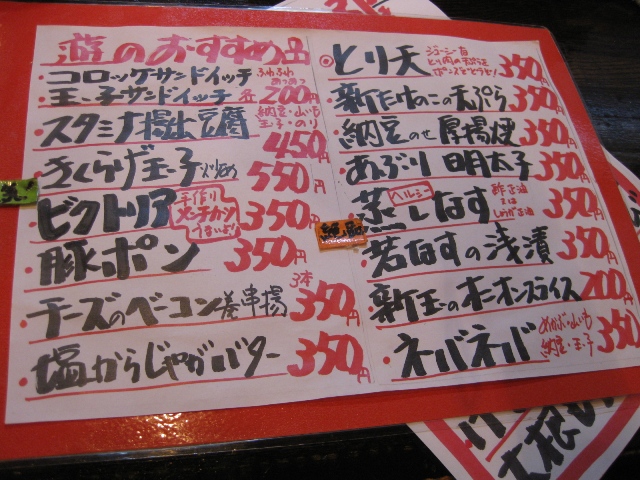 遊のおすすめ品
コロッケサンドイッチ ふわふわ
玉子サンドイッチ 各200円
スタミナ揚出豆腐 納豆・山いも 玉子・のり 450円
きくらげ玉子炒め 550円
ビクトリア 手作り メンチカツ うまいよ! 350円
豚ポン 350円
チーズのベーコン巻串揚 3本 350円
塩からじゃがバター 350円
とり天 ジューシーな とり肉の天ぷらを ポンズでどうぞ! 350円
新たけのこの天ぷら 350円
納豆のせ厚揚焼 350円
あぶり明太子 350円
蒸しなす ヘルシー 酢正油 又は しょうが正油 350円
若なすの浅漬 350円
新玉のオニオンスライス 200円
ネバネバ めかぶ・山いも 納豆・玉子 350円
大根